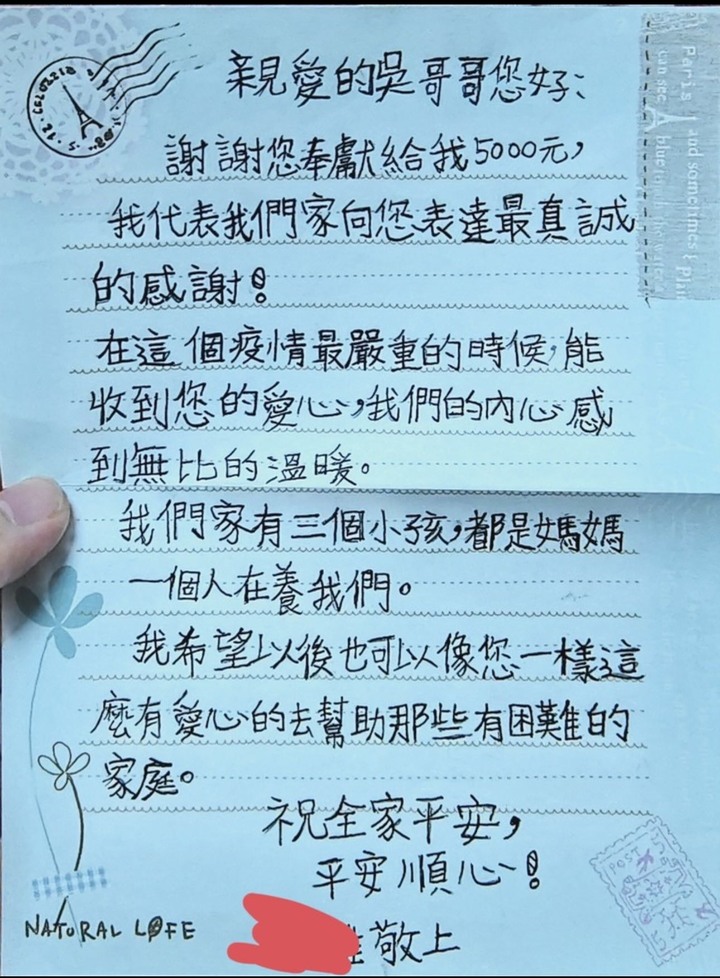 親愛的吳哥哥您好:
謝謝您奉獻給我5000元,
我代表我們家向您表達最真誠
的感謝!
在這個疫情最嚴重的時候,能
收到您的愛心,我們的內心感
到無比的溫暖。
我們家有三個小孩,都是媽媽
一個人在養我們。
我希望以後也可以像您一樣這
麼有愛心的去幫助那些有困難的
家庭。
祝全家平安,
平安順心!
敬上
NATURAL LIFE
Paris
and sometimes
can see
blue
POST